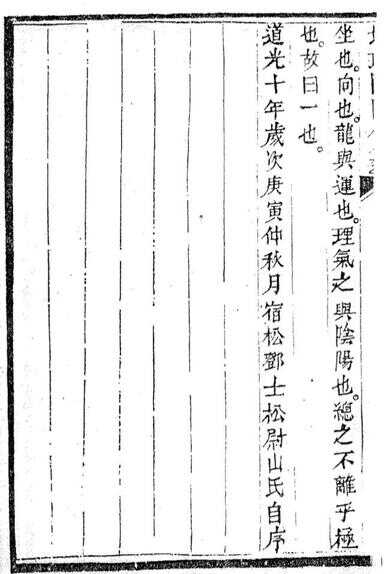 坐也。向也。龍與運也。理氣之與陰陽也。總之不離乎極
也。故曰一也。
道光十年歲次庚寅仲秋月宿松鄧士松尉山氏自序